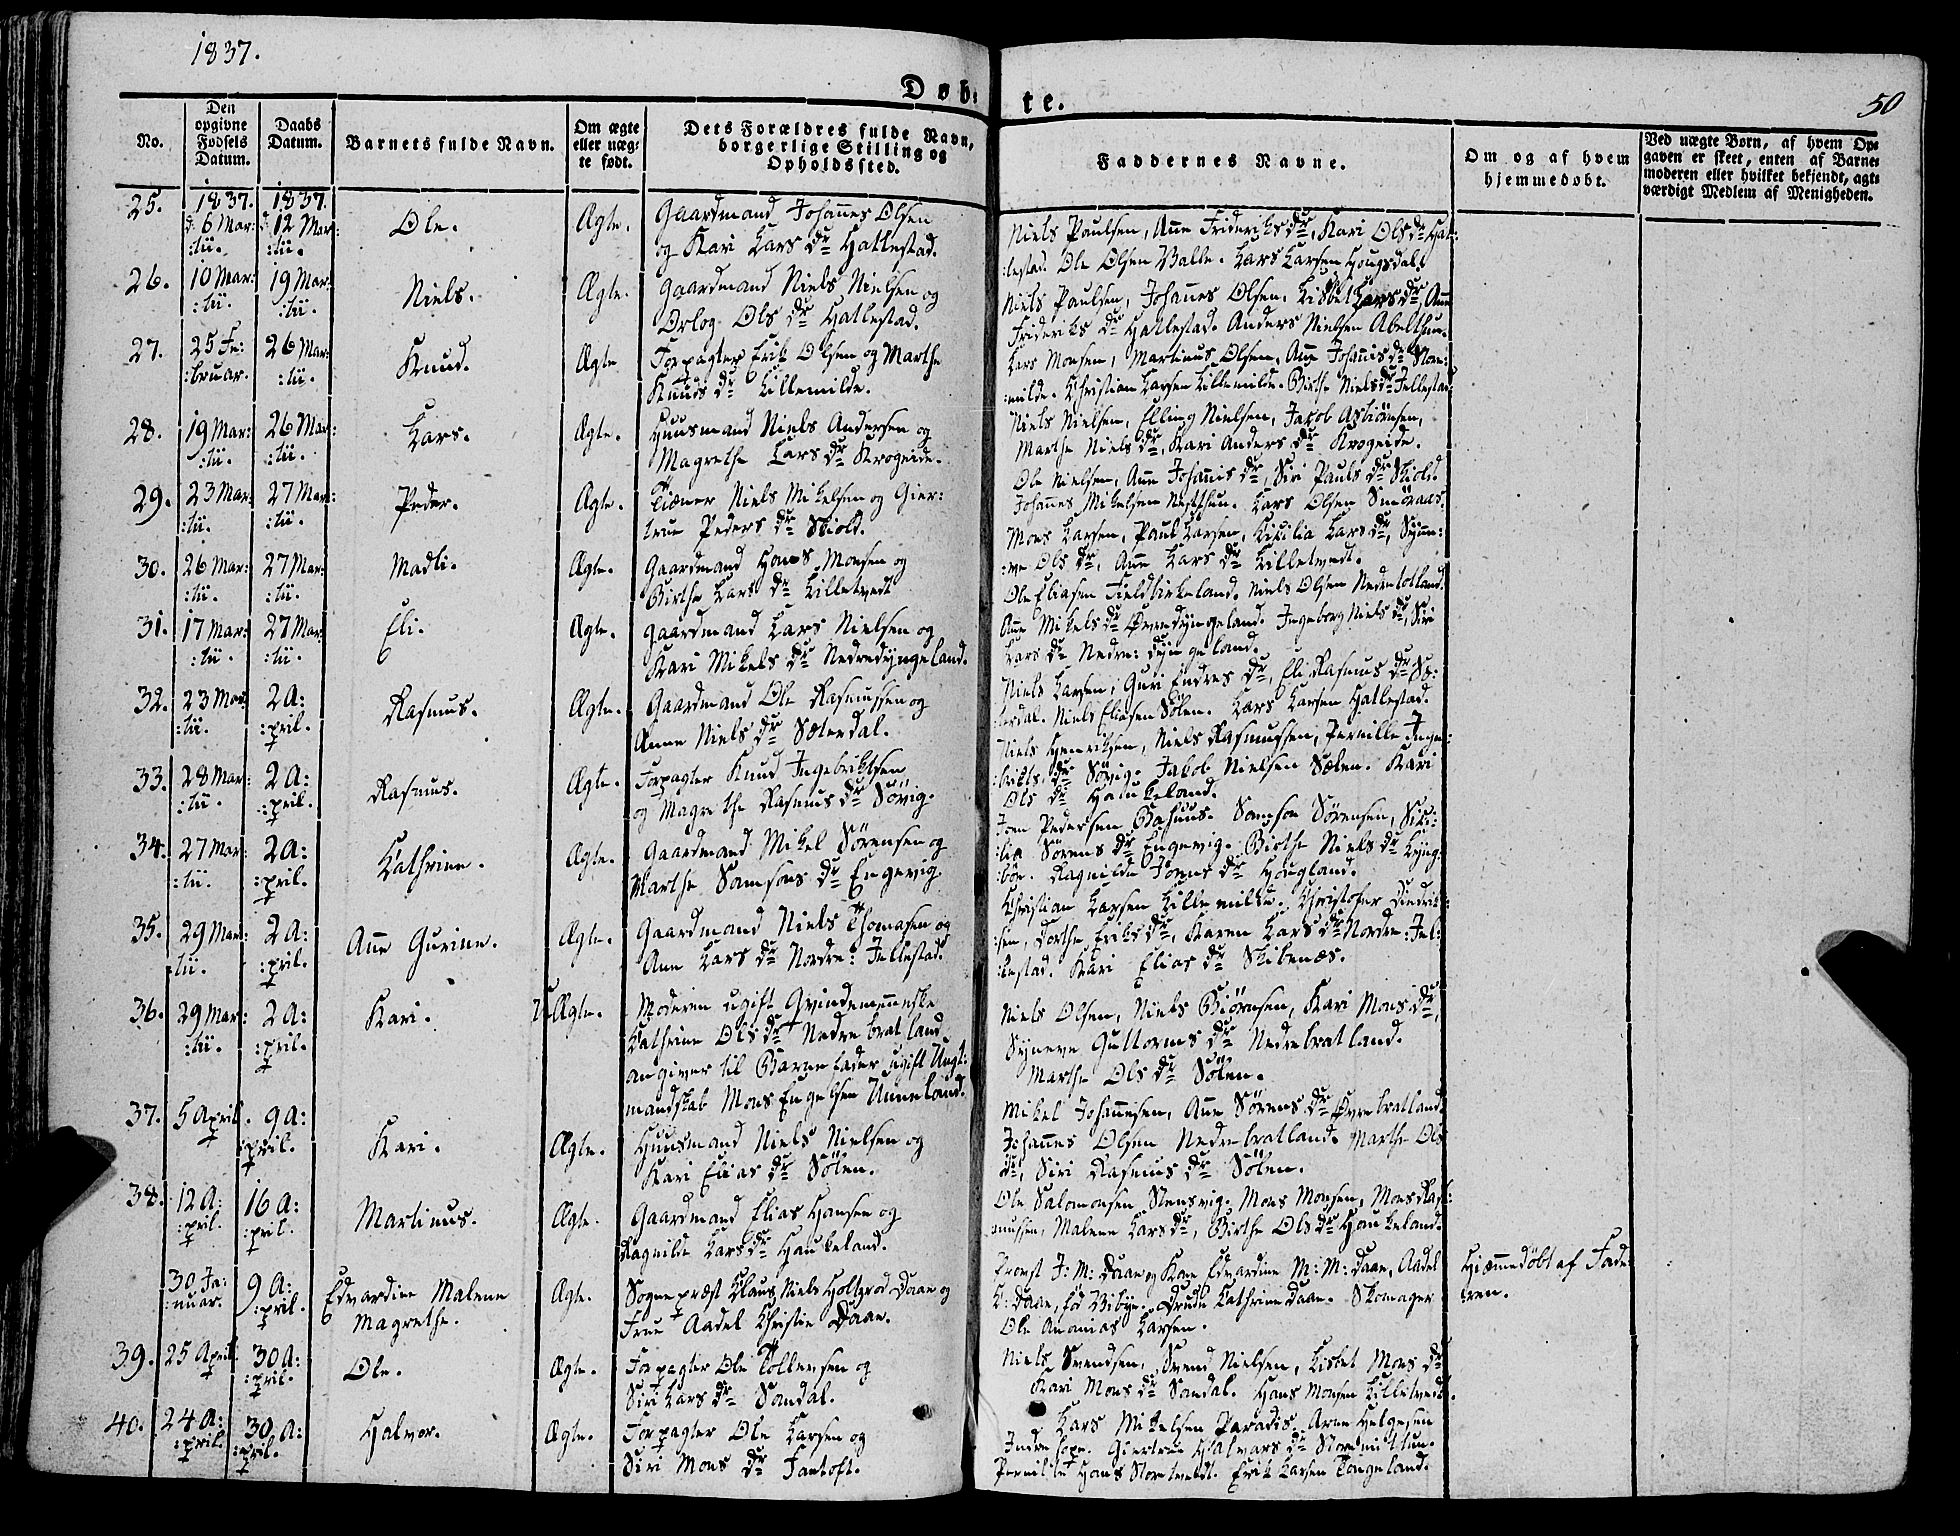 1837.
50
Døb: te.
No.
Den opgivne Fødsels Datum.
Daabs Datum.
Barnets fulde Navn.
Om ægte eller uæg: te født.
Dets Forældres fulde Navn, borgerlige Stilling og Opholdssted.
Faddernes Navne.
Om og af hvem hjemmedøbt.
Ved uægte Børn, af hvem Op: gaven er skeet, enten af Barne: moderen eller hvilket bekjendt, agt: værdigt Medlem af Menigheden.
25. 1837. d. 6 Mar: :tii. 1837. d. 12 Mar: :tii. Ole. Ægte.
Gaardmand Johannes Olsen
og Kari Lars Dr Hatlestad.
Niels Paulsen, Anne Friderichs Dr, Kari Ols Dr Hat:
:lestad. Ole Olsen Balle. Lars Larsen Hougsdal.
26. 10 Mar: :tii. 19 Mar: :tii. Niels. Ægte.
Gaardmand Niels Nielsen og
Orlog Ols Dr Hatlestad.
Niels Paulsen, Johannes Olsen, Lisbet Lars Dr, Anne
Friderichs Dr Hatlestad. Anders Nielsen Abelthun.
27. 25 Fe: :bruar. 26 Mar: :tii. Knud. Ægte
Forpagter Erik Olsen og Marthe
Knuds Dr Lillemilde.
Lars Monsen, Martinus Olsen, Anne Johannis Dr Store:
:milde. Christian Larsen Lillemilde. Birthe Niels Dr Jellestad
28. 19 Mar: :tii. 26 Mar: :tii. Lars. Ægte.
Huusmand Niels Andersen og
Magrethe Lars Dr Krogeide.
Niels Nielsen, Elling Nielsen, Jakob Asbiørnsen,
Marthe Niels Dr, Kari Anders Dr Krogeide.
29. 23 Mar: :tii. 27 Mar: :tii. Peder. Ægte.
Tiæner Niels Mikelsen og Gier:
true Peders Dr Skiold.
Ole Nielsen, Anne Johannis Dr, Siri Pauls Dr Skiold.
Johannes Mikelsen Nestthun. Lars Olsen Smøraas.
30. 26 Mar: :tii. 27 Mar: :tii. Madli. Ægte.
Gaardmand Hans Monsen og
Birthe Lars Dr Lilletvedt
Mons Larsen, Paul Larsen, Lars Dr, Synne:
:ve Ols Dr, Anne Lars Dr Lilletvedt.
31. 17 Mar: :tii. 27 Mar: :tii. Eli. Ægte.
Gaardmand Lars Nielsen og
Kari Mikels Dr Nedredyngeland.
Ole Eliasen Fieldbirkeland. Niels Olsen Nedretotland.
Anne Mikels Dr Øvredyngeland. Ingeborg Niels Dr, Siri
Lars Dr Nedre: dyngeland.
32. 23 Mar: :tii. 2 A: :pril. Rasmus. Ægte.
Gaardmand Ole Rasmussen og
Anne Niels Dr Sælendal.
Niels Larsen, Guri Endres Dr, Eli Rasmus Dr Sæ:
:lendal. Niels Eliasen Sølen. Lars Larsen Hatlestad.
33. 28 Mar: :tii. 2 A: :pril. Rasmus. Ægte.
Forpagter Knud Ingebrichtsen
og Magrethe Rasmus Dr Søvig.
Niels Henrichsen, Niels Rasmussen, Pernille Inge:
:brichts Dr Søvig. Jakob Nielsen Sælen. Kari
Ols Dr Haukeland.
34. 27 Mar: :tii. 2 A: :pril. Kathrine. Ægte.
Gaardmand Mikel Sørensen og
Marthe Samsons Dr Engevig.
Joen Pedersen Bahuus. Samson Sørensen, Sici:
:lia Sørens Dr Engevig. Birthe Niels Dr Lyng:
:bøe. Ragnilde Joens Dr Hougland.
35. 29 Mar: :tii. 2 A: :pril. Anne Gurine. Ægte.
Gaardmand Niels Thomasen og
Ane Lars Dr Nordre: Jellestad.
Christian Larsen Lillemilde. Christofer Diedrich:
:sen, Dorthe Erichs Dr, Karen Lars Dr Nordre: Jel:
:lestad. Kari Elias Dr Skibenæs.
36. 29 Mar: :tii. 2 A: :pril. Kari. UÆgte.
Moderen ugift Qvindemenneske
Kathrine Ols Dr Nedrebratland
angiver til Barnefader ugift Ungt:
mandskab Mons Engelsen Unneland.
Niels Olsen, Niels Biørnsen, Kari Mons Dr,
Synneve Guttorms Dr Nedrebratland.
Marthe Ols Dr Sølen.
37. 5 April. 9 A: :pril. Kari. Ægte.
Huusmand Niels Nielsen og
Kari Elias Dr Sølen.
Mikel Johannesen, Anne Sørens Dr Øvrebratland.
Johannes Olsen Nedrebratland. Marthe Ols
Dr, Siri Rasmus Dr Sølen.
38. 12 A: :pril. 16 A: :pril. Martinus. Ægte.
Gaardmand Elias Hansen og
Ragnilde Lars Dr Haukeland.
Ole Salomonsen Stensvig. Mons Monsen, Mons Ras:
mussen, Malene Lars Dr, Birthe Ols Dr Haukeland.
30 Ja: :nuar. 9 A: :pril. Edvardine Malene Magrethe. Ægte.
Sognepræst Klaus Niels Holtzrod Daae og
Frue Aadel Christie Daae.
Provst J: M: Daae og Kone Edvardine M: M: Daae, Aadel
C: Daae, fød Vibye. Drude Cathrine Daae. Skomager
Ole Ananias Larsen.
Hiemmedøbt af Fade:
:ren.
39. 25 April 30 A: :pril. Ole. Ægte.
Forpagter Ole Tollevsen og
Siri Lars Dr Sandal.
Niels Svendsen, Svend Nielsen, Lisbet Mons Dr
Kari Mons Dr Sandal. Hans Monsen Lilletvedt.
40. 24 A: :pril. 30 A: :pril. Halvor. Ægte.
Forpagter Ole Larsen og
Siri Mons Dr Fantoft.
Lars Mikelsen Paradis. Arne Helgesen
Indre Hope. Giertrue Halvars Dr Storemilthun.
Pernille Hans Storetvedt. Erik Larsen Tongeland.